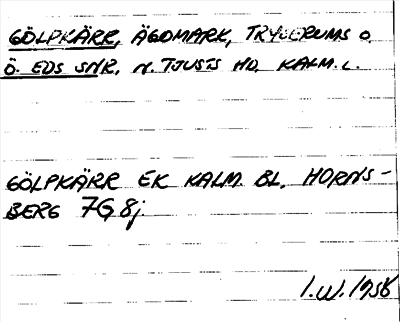 GÖLPKÄRR, ÄGOMARK, TRYSERUMS O.
Ö. EDS SNR, N. TJUSTS HD. KALM. L.
GÖLPKÄRR EK KALM. BL. HORNS-
BERG 7G 8j.
I.W. 1958